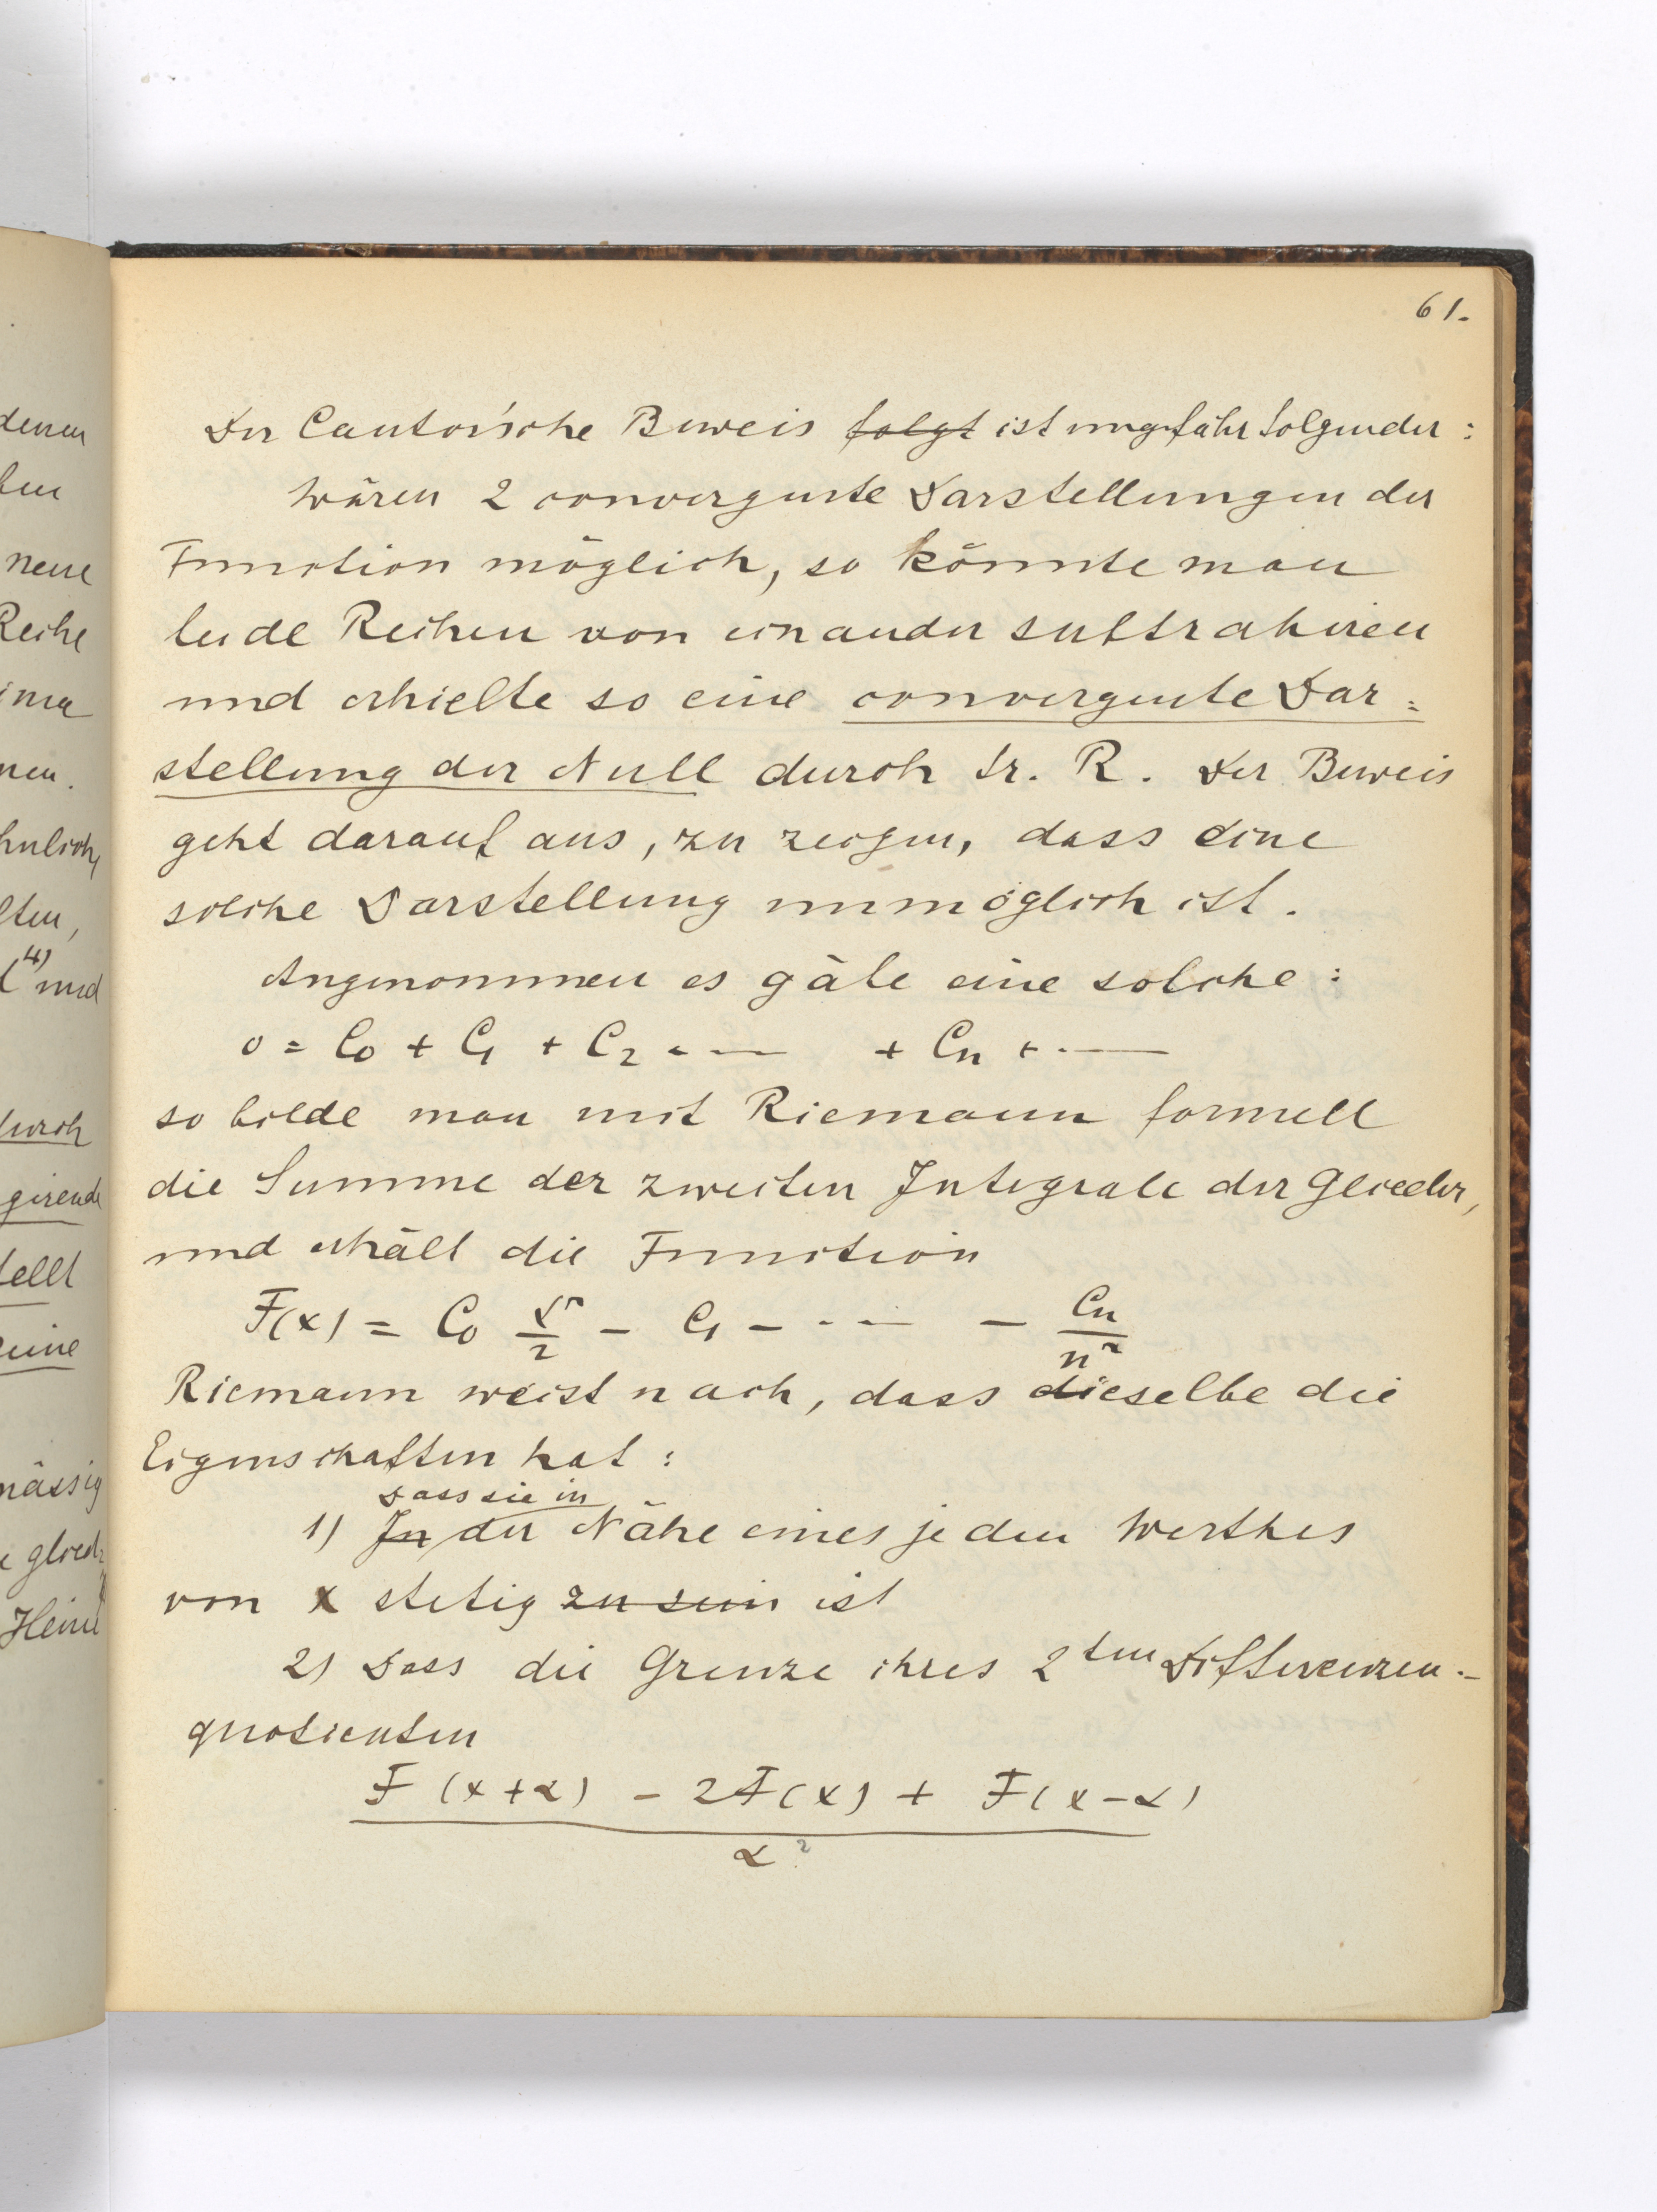 61.
Der Cantor'sche Beweis folgt ist ungefähr folgender:
Wären 2 convergente Darstellungen der
Function möglich, so könnte man
beide Reihen von einander subtrahiren
und erhielte so eine convergente Dar=
stellung der Null durch tr. R. Der Beweis
geht darauf aus, zu zeigen, dass eine
solche Darstellung unmöglich ist.
Angenommen es gäbe eine solche:
0 = C₀ + C₁ + C₂ + · — + Cₙ + · —
so bilde man mit Riemann formell
die Summe der zweiten Integrale der Glieder,
und erhält die Function
F(x) = C₀ x²/2 − C₁ − · · — − Cₙ/n²
Riemann weist nach, dass dieselbe die
Eigenschaften hat:
dass sie in
1) In der Nähe eines jeden Werthes
von x stetig zu sein ist
2) Dass die Grenze ihres 2ten Differenzen-
quotienten
F(x+α) − 2F(x) + F(x−α)
α²
denen
ben
neue
Reihe
nen.
hnlich,
lten,
4) und
durch
girende
tellt
eine
mässig
Heine